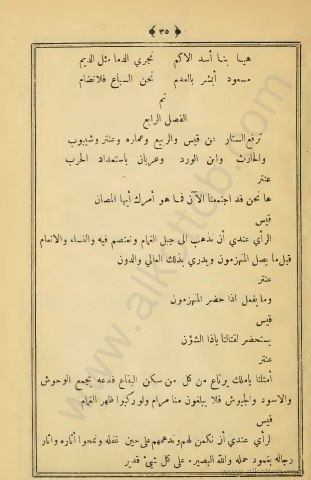 ﴿ ٣٥ ﴾
هيا بنا أسد الاكم نجري الدما مثل الديم
مسعود أبشر بالعدم نحن السباع فلانضام
تم
الفصل الرابع
ترفع الستار عن قيس والربيع وعماره وعنتر وشيبوب
والحارث وابن الورد وعربان باستعداد الحرب
عنتر
ها نحن قد اجتمعنا الآن فما هو أمرك أيها المصان
قيس
الرأي عندي أن نذهب الى جبل الغمام ونعتصم فيه والنساء والانعام
قبل ما يصل المنهزمون ويدري بذلك العالي والدون
عنتر
وما يفعل اذا حضر المنهزمون
قيس
يستحضر لقتالنا ياذا الشؤن
عنتر
أمثلنا ياملك يرتاع من كل من سكن البقاع فدعه يجمع الوحوش
والاسود والجيوش فلا يبلغون منا مرام ولو ركبوا ظهر الغمام
قيس
الرأي عندي أن نكمن لهم وندهمهم على حين غفله ونمحوا آثاره وآثار
رجاله بقعود حمله والله البصير. على كل شيئ قدير
www.alkottob.com